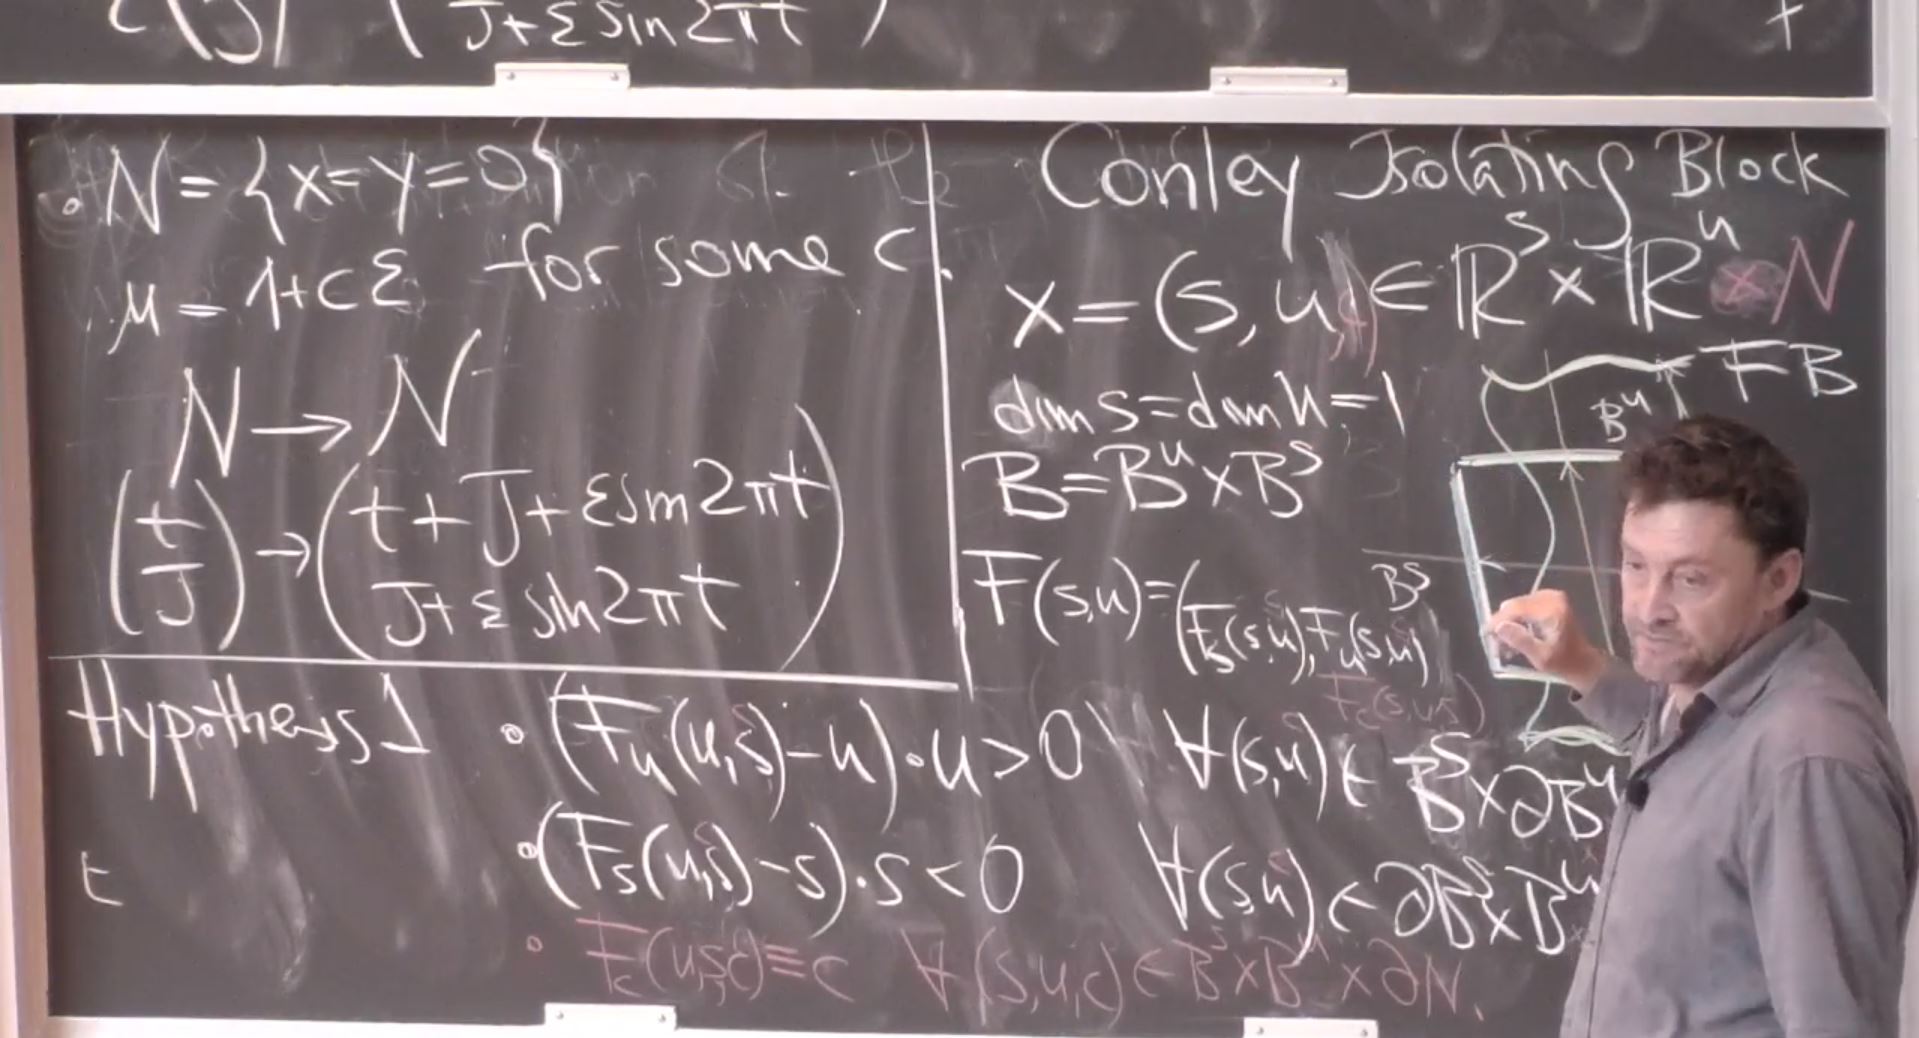 J+εsin2πt
• N={x=y=0}
μ=1+cε for some c.
N→N
(t J)→(t+J+εsin2πt J+εsin2πt)
Conley Isolating Block
x=(s,u,c)∈ℝˢ×ℝᵘ×N
dim s=dim u=1
B=Bᵘ×Bˢ
F(s,u)=(Fₛ(s,u),Fᵤ(s,u)
F_c(s,u,c)
FB
Bᵘ
Bˢ
Hypothesis 1
• (Fᵤ(u,s)-u)·u>0 ∀(s,u)∈Bˢ×∂Bᵘ
• (Fₛ(u,s)-s)·s<0 ∀(s,u)∈∂Bˢ×Bᵘ
• F_c(u,s,c)≡c ∀(s,u,c)∈Bˢ×Bᵘ×∂N.
t